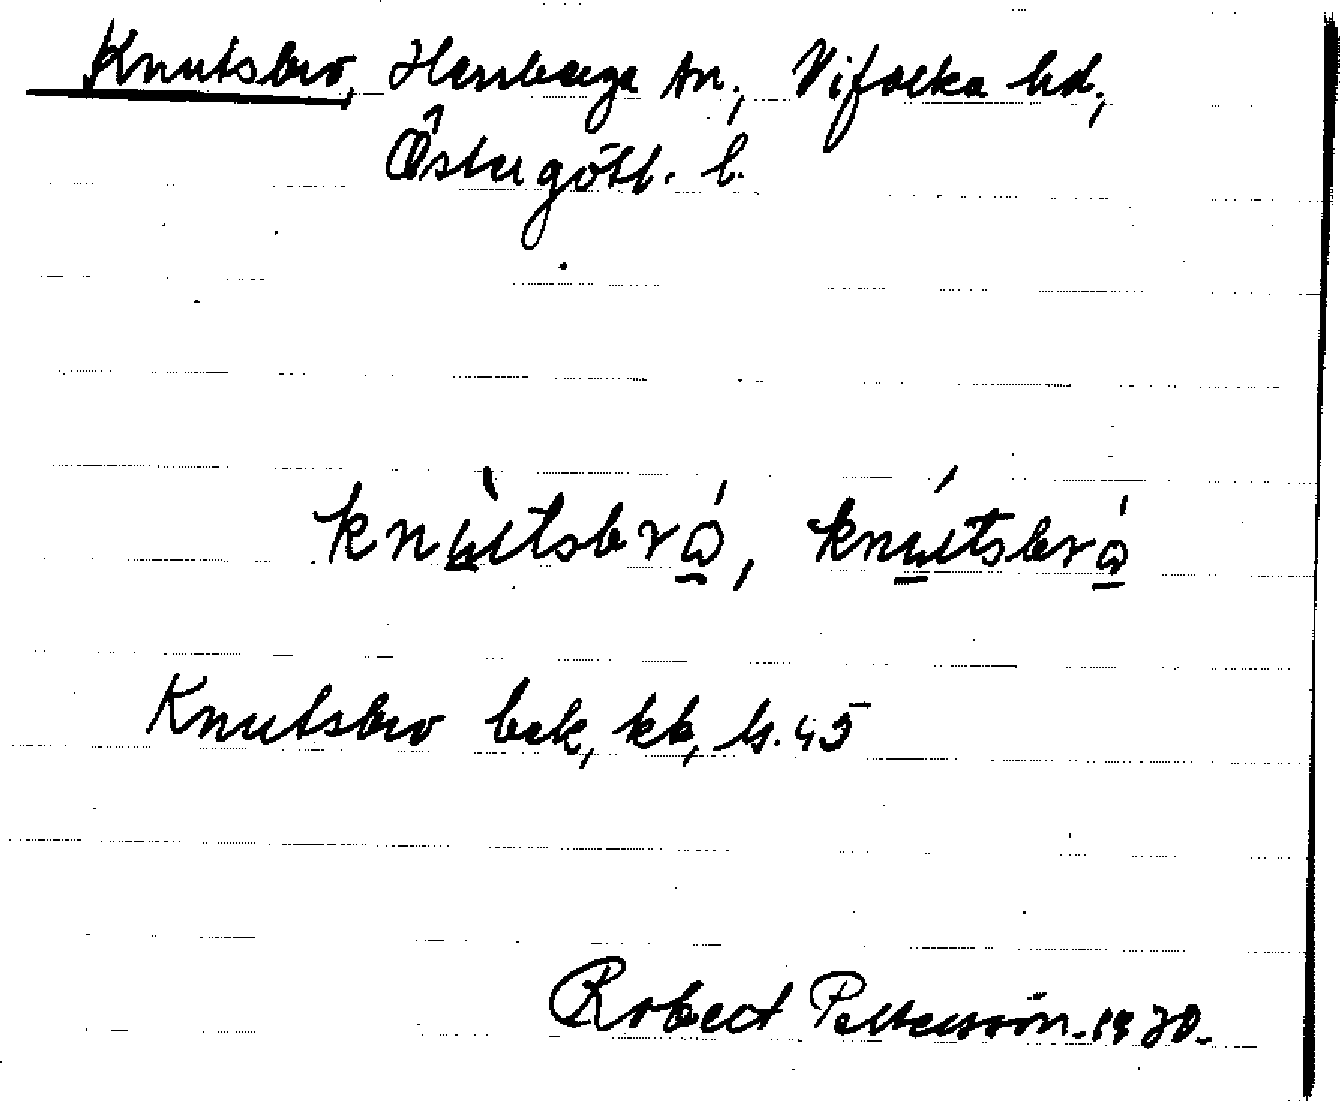 Knutsbro, Herrberga sn., Vifolka hd.,
Östergötl. l.
knùtsbró, knútsbró
Knutsbro bek, kb, ls. 45
Robert Petterson. 1930.